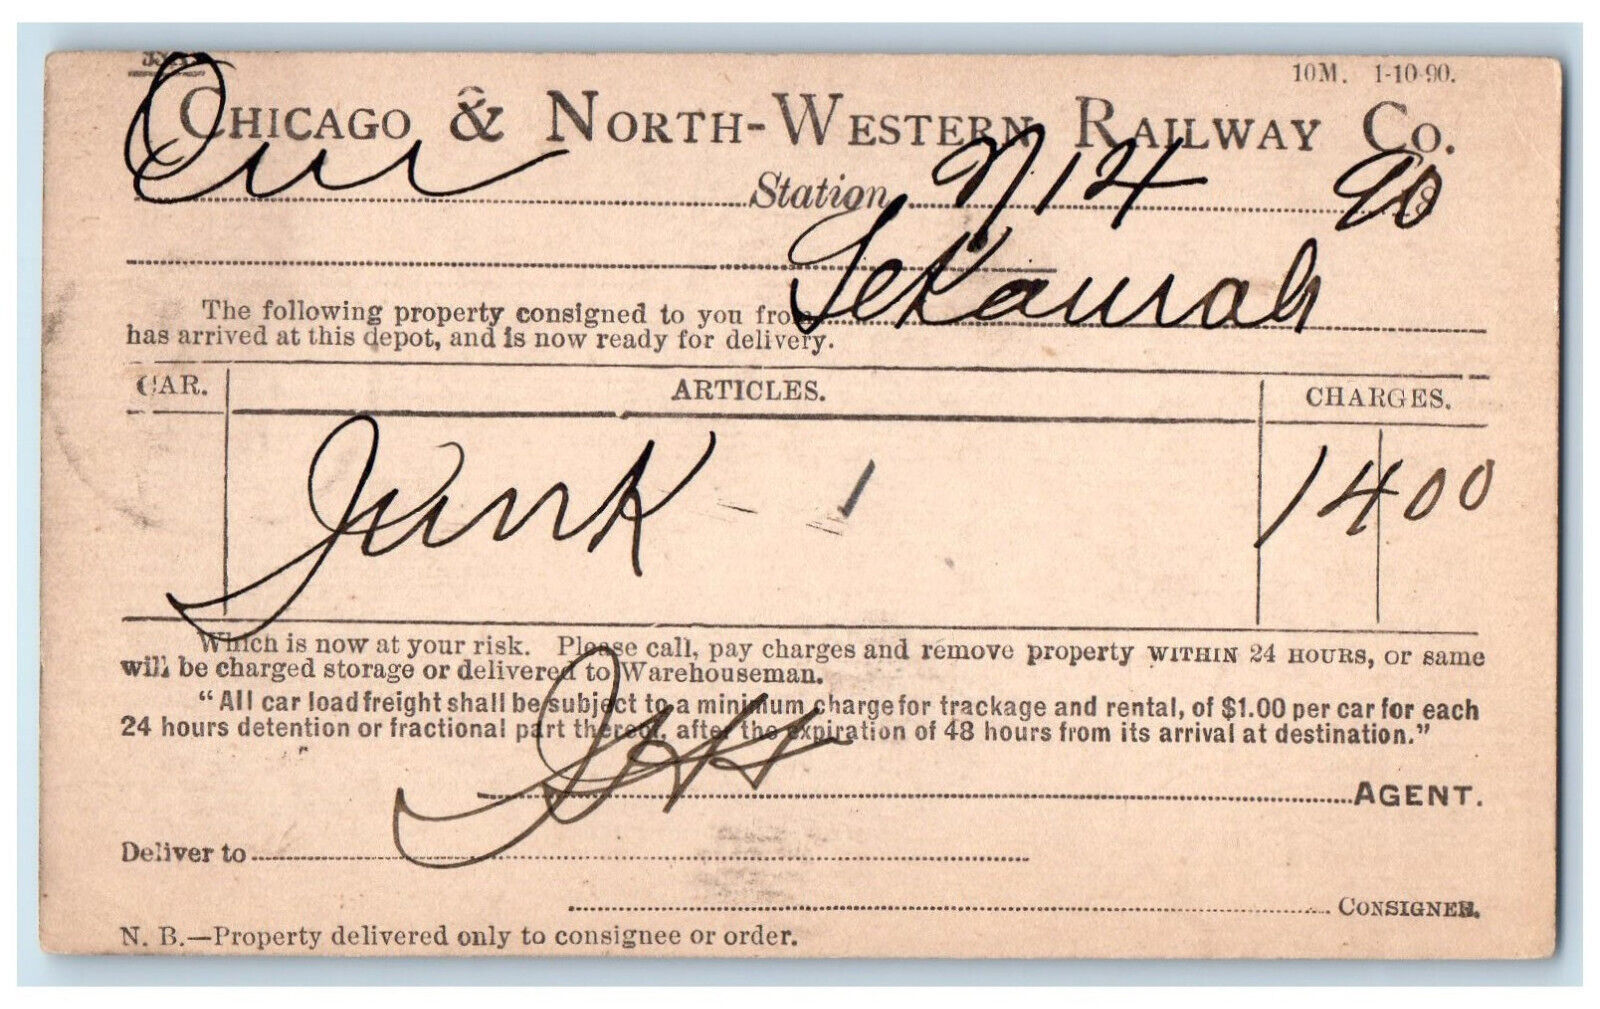 10M. 1-10-90.
CHICAGO & NORTH-WESTERN RAILWAY CO.
Station 14 90
The following property consigned to you from Tekamah
has arrived at this depot, and is now ready for delivery.
CAR. ARTICLES. CHARGES.
Junk - 1 14 00
Which is now at your risk. Please call, pay charges and remove property WITHIN 24 HOURS, or same
will be charged storage or delivered to Warehouseman.
"All car load freight shall be subject to a minimum charge for trackage and rental, of $1.00 per car for each
24 hours detention or fractional part thereof, after the expiration of 48 hours from its arrival at destination."
AGENT.
Deliver to
CONSIGNEE.
N. B.—Property delivered only to consignee or order.